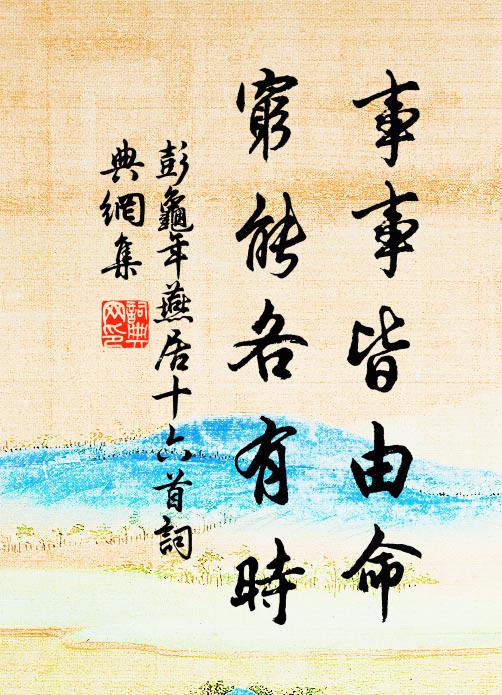 事事皆由命
窮能各有時
彭龜年燕居十六首詞
典網集
詞典
網印